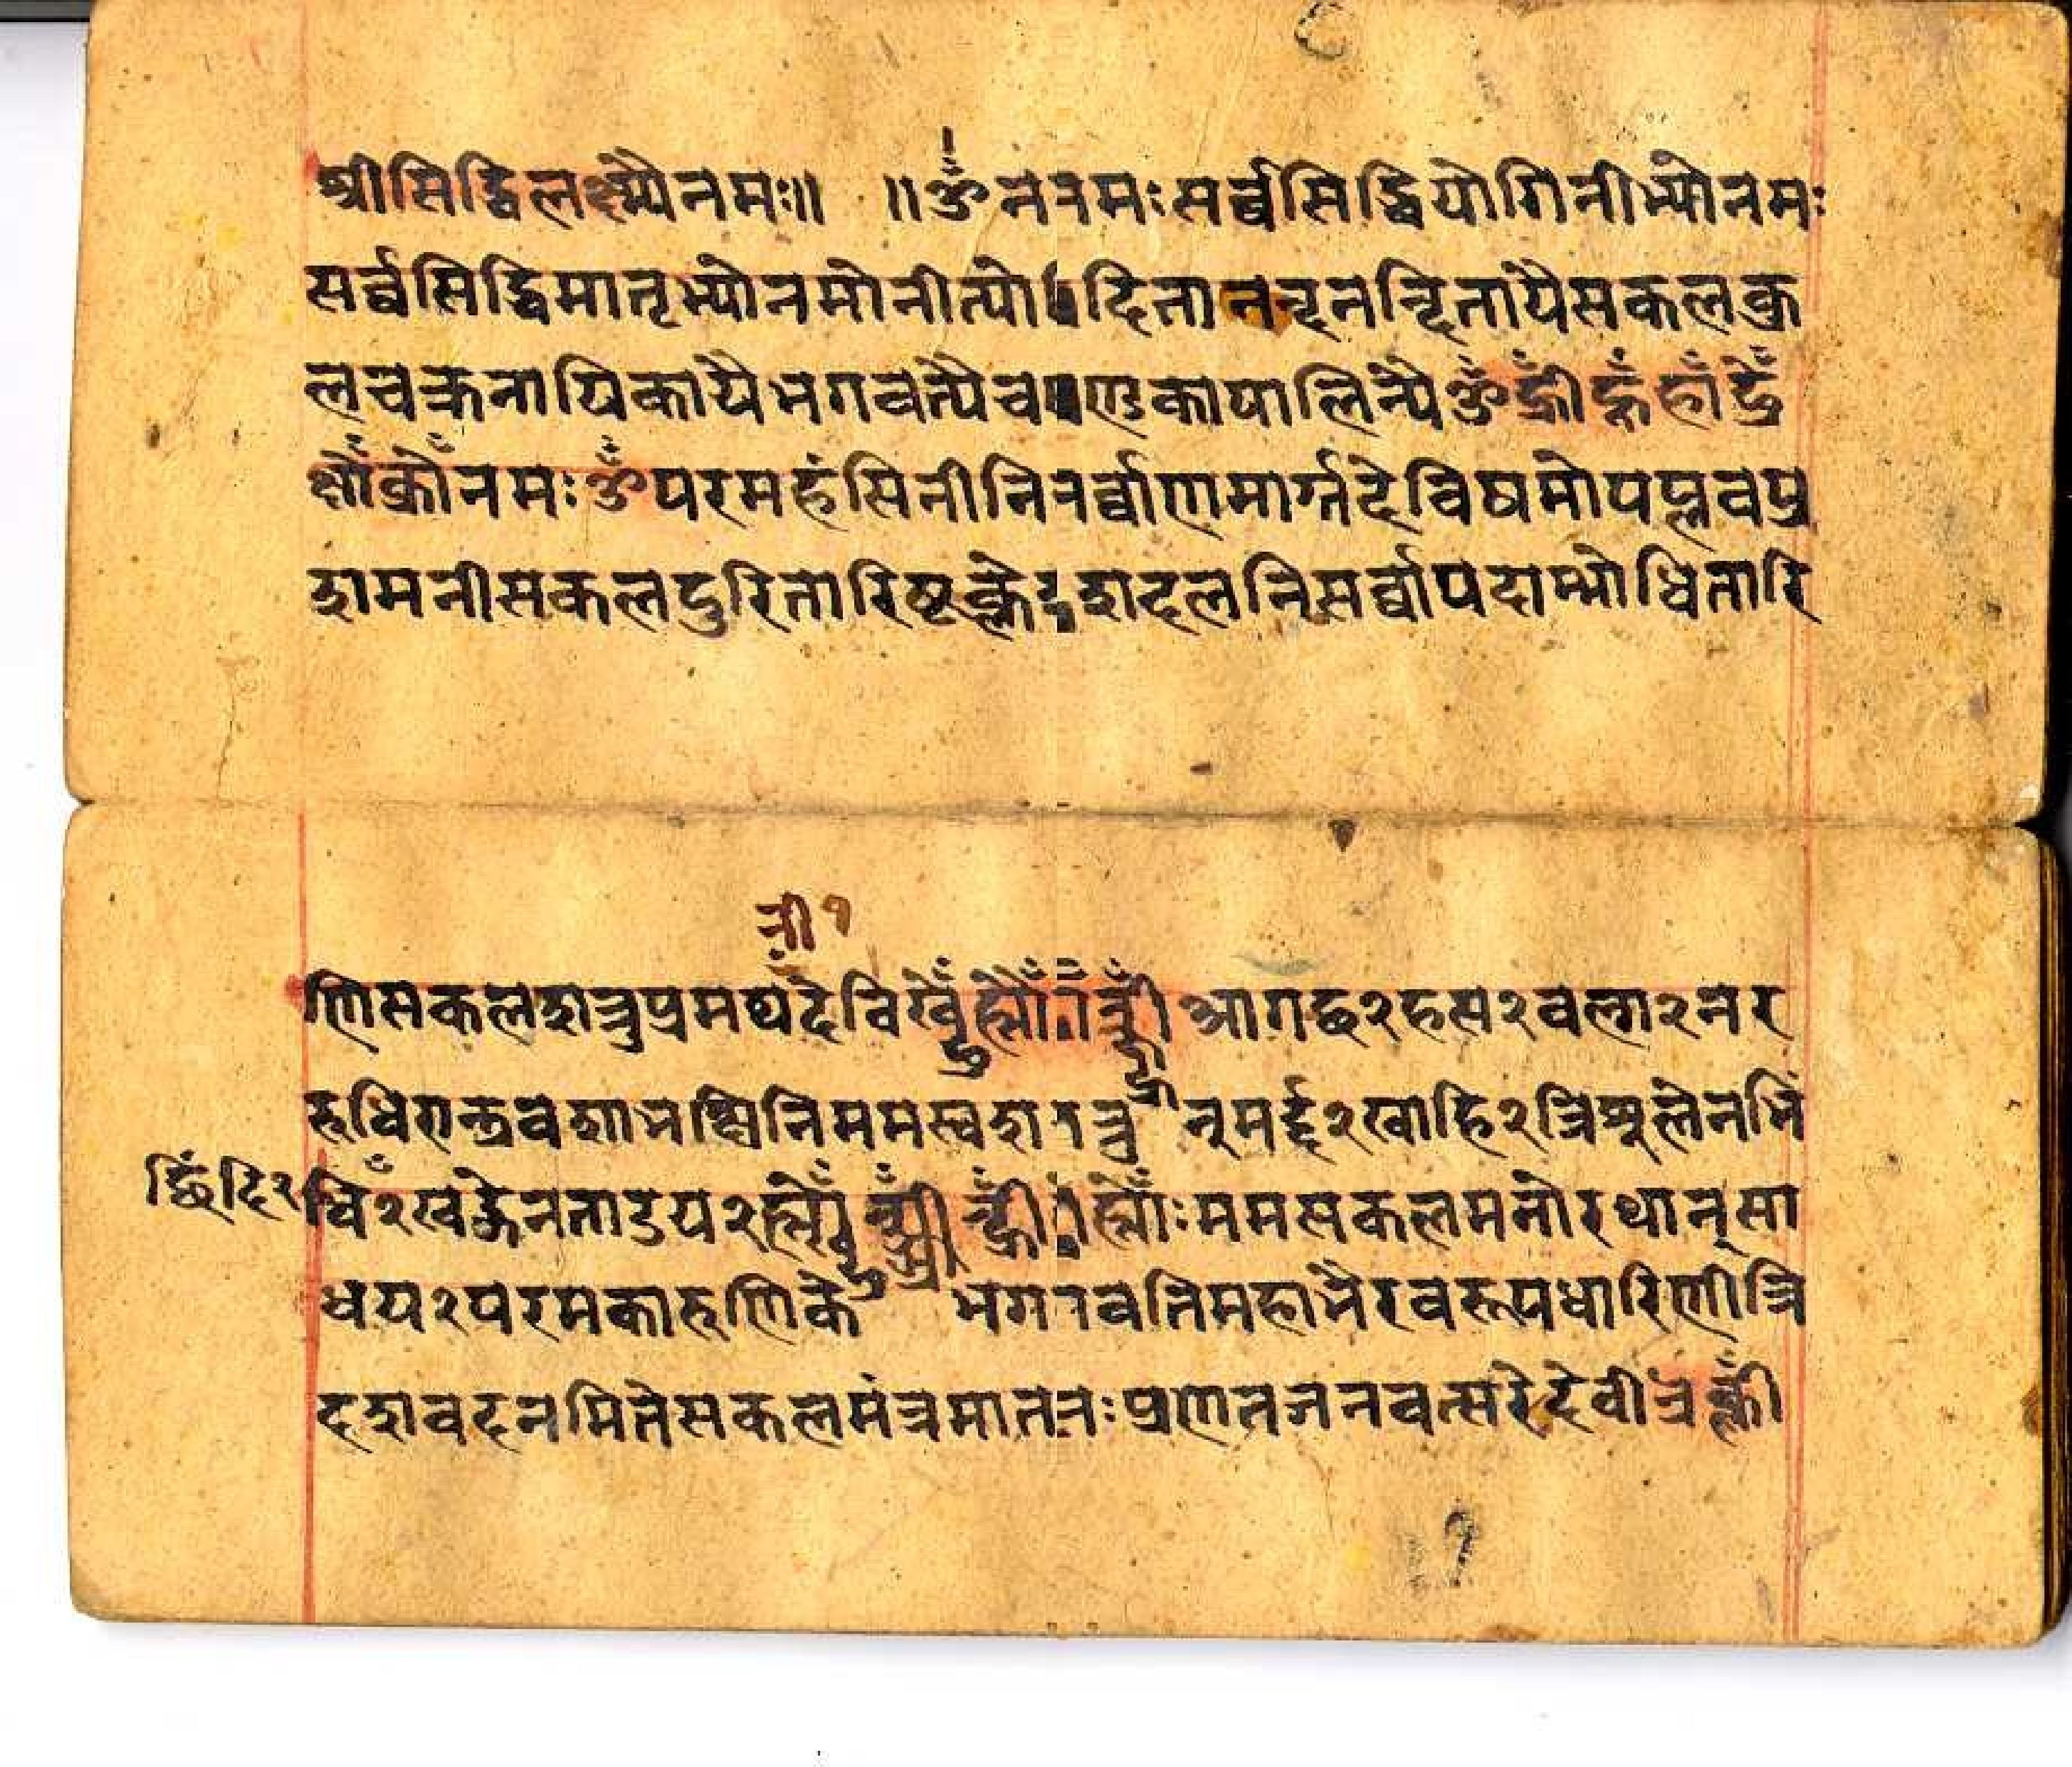 श्रीसिद्धिलक्ष्म्यैनमः॥ ॥ॐननमःसर्व्वसिद्धियोगिनीभ्योनमः
सर्व्वसिद्धिमातृभ्योनमोनीत्योदितानन्दनन्दितायैसकलकु
लचक्रनायिकायैभगवत्यैचण्डकापालिन्यै
नमःॐपरमहंसिनीनिनर्व्वाणमार्ग्गदेविषमोपप्लवप्र
शमनीसकलदुरितारिष्टक्लेदशदलनिसर्व्वापदाम्भोधितारि
नी१
णिसकलशत्रुप्रमथंदेवि आगछ२हस२वल्ग२नर
रुधिरान्त्रवशाभक्षिनिममस्वश नूमर्द्द२खाहि२त्रिशूलेनभिं
छिंदि२
धिं२खड्गेनताडय२ ममसकलमनोरथान्सा
धय२परमकारुणिके भगवतिमहाभैरवरूपधारिणीत्रि
दशवदनमितेसकलमंत्रमातनःप्रणतजनवत्सरेदेवी
१